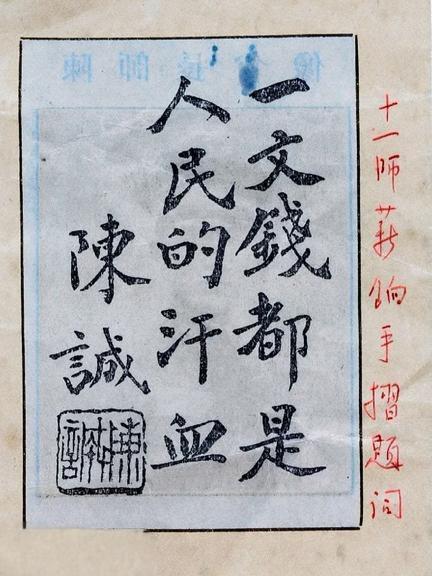 十一师薪饷手摺题词
一文錢都是
人民的汗血
陳誠